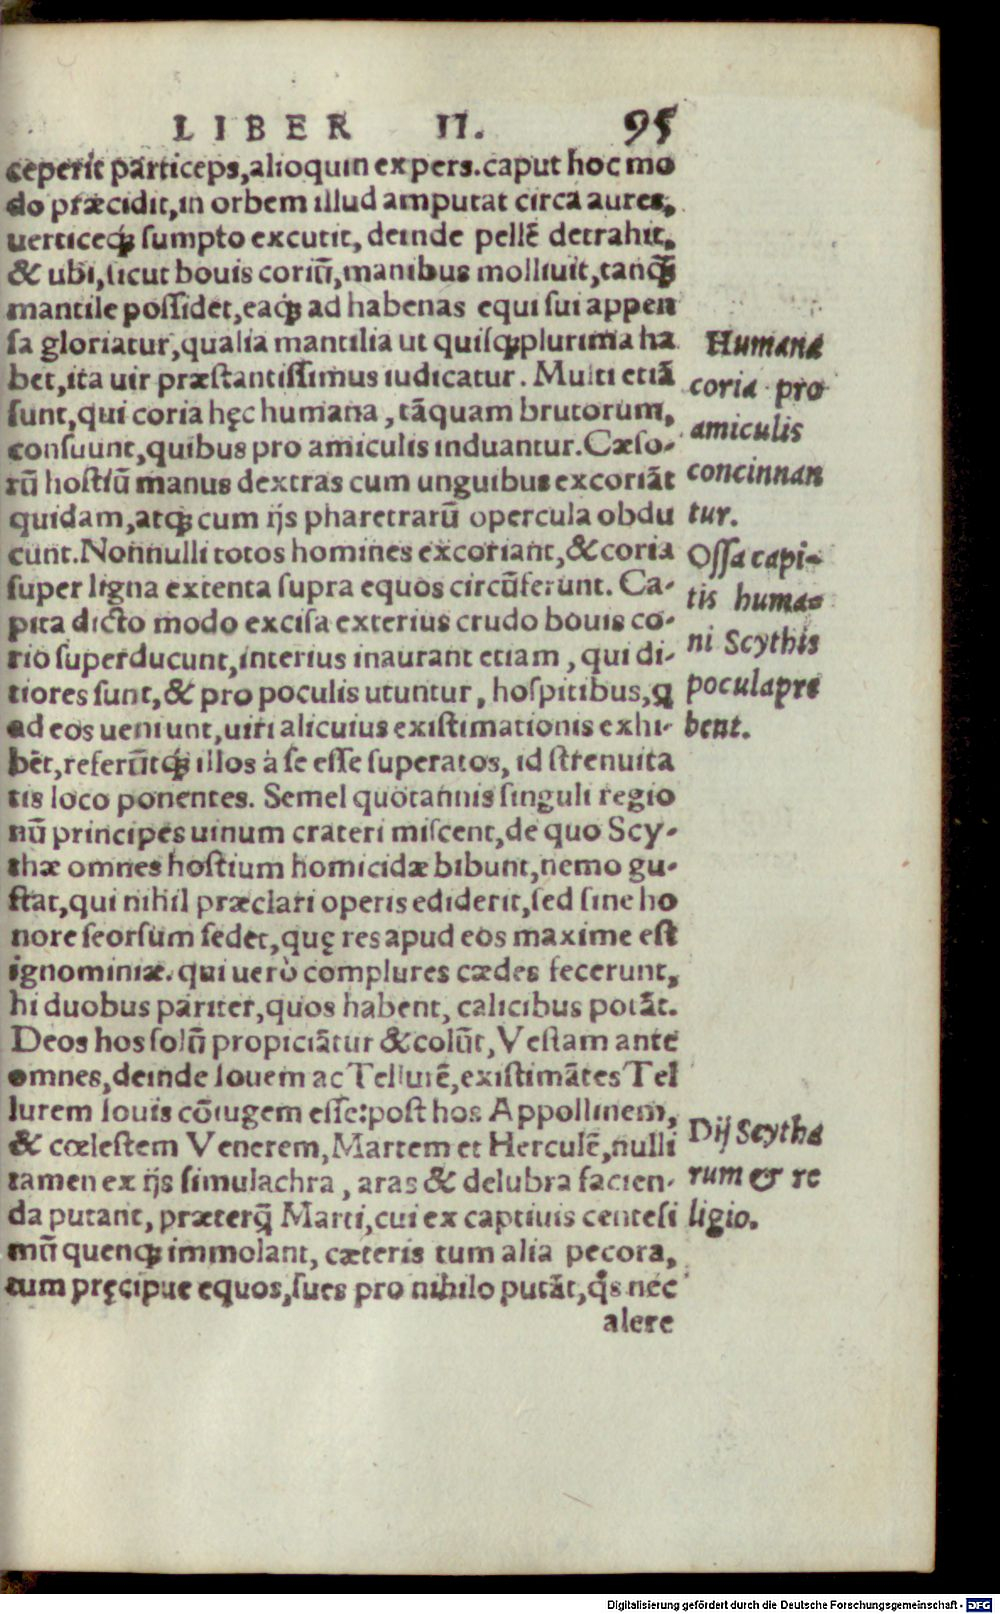 LIBER II. 95
ceperit particeps,alioquin expers.caput hoc mo
do præcidit,in orbem illud amputat circa aures,
uerticeq́ꝫ sumpto excutit, deinde pellē detrahit.
& ubi,sicut bouis coriū,manibus molliuit,tanq̃ꝫ
mantile possidet,eaq́ꝫ ad habenas equi sui appen
sa gloriatur,qualia mantilia ut quisqꝫplurima ha
bet,ita uir præstantissimus iudicatur. Multi etiā
sunt,qui coria hęc humana, tāquam brutorum,
consuunt,quibus pro amiculis induantur.Cæso-
rū hostiū manus dextras cum unguibus excoriāt
quidam,atqꝫ cum ijs pharetrarū opercula obdu
cunt.Nonnulli totos homines excoriant,&coria
super ligna extenta supra equos circūferunt. Ca-
pita dicto modo excisa exterius crudo bouis co-
rio superducunt,interius inaurant etiam, qui di-
tiores sunt,& pro poculis utuntur, hospitibus,ꝗ
ad eos ueniunt,uiri alicuius existimationis exhi-
bēt,referūtq́ꝫ illos à se esse superatos, id strenuita
tis loco ponentes. Semel quotannis singuli regio
nū principes uinum crateri miscent,de quo Scy-
thæ omnes hostium homicidæ bibunt,nemo gu-
stat,qui nihil præclari operis ediderit,sed sine ho
nore seorsum sedet,quę res apud eos maxime est
ignominiæ. qui uerò complures cædes fecerunt,
hi duobus pariter,quos habent, calicibus potāt.
Deos hos solū propiciātur &colūt,Vestam ante
omnes,deinde Iouem ac Tellurē,existimātes Tel
lurem Iouis cōiugem esse:post hos Appollinem,
& cœlestem Venerem,Martem et Herculē,nulli
tamen ex ijs simulachra, aras & delubra facien-
da putant, præterq̃ Marti,cui ex captiuis centesi
mū quenqꝫ immolant, cæteris tum alia pecora,
tum pręcipue equos,sues pro nihilo putāt,q̊s nec
alere
Humana
coria pro
amiculis
concinnan
tur.
Ossa capi-
tis huma-
ni Scythis
poculapre
bent.
Dij Scytha
rum & re
ligio.
Digitalisierung gefördert durch die Deutsche Forschungsgemeinschaft - DFG